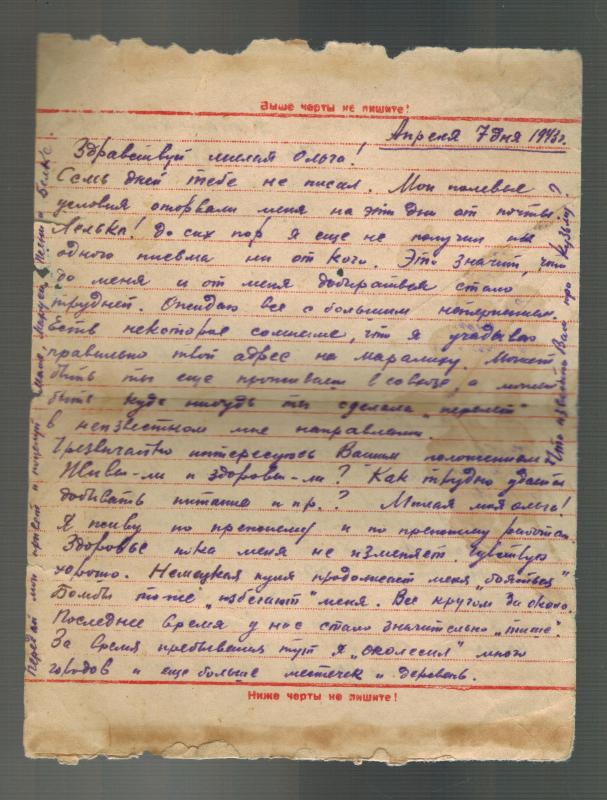 Выше черты не пишите!
Апреля 7 дня 1943г.
Здравствуй милая Ольга!
Семь дней тебе не писал. Мои полевые
условия оторвали меня на эти дни от почты.
Лелька! До сих пор я еще не получил ни
одного письма ни от кого. Это значит, что
до меня и от меня добираться стало
трудней. Ожидаю все с большим напряжением.
Есть некоторое сомнение, что я угадываю
правильно твой адрес на
быть ты еще проживаешь в совхозе, а может
быть куда нибудь ты сделала „перелет"
в неизвестном мне направлении.
Чрезвычайно интересуюсь Вашим положением.
Живы-ли и здоровы-ли? Как трудно удается
добывать питание и пр.? Милая моя Ольга!
Я живу по прежнему и по прежнему работаю.
Здоровье пока меня не изменяет. Чувствую
хорошо. Немецкая пуля продолжает меня „бояться"
Бомбы тоже „избегают" меня. Все кругом
Последнее время у нас стало значительно „тише".
За время пребывания тут я „околесил" много
городов и еще больше местечек и деревень.
Ниже черты не пишите!
Передай мой привет и поцелуй Маме, Марусе,
Что известно Вам про Кузьму?